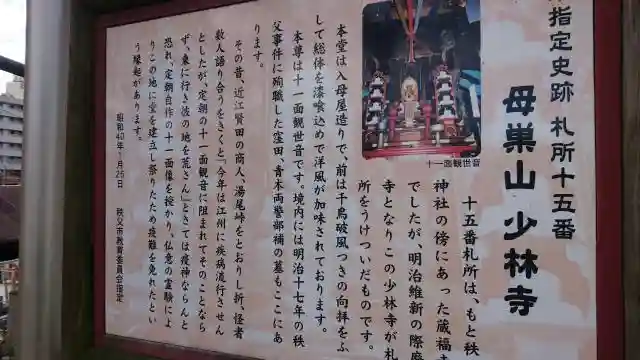 指定史跡 札所十五番
母巣山 少林寺
十一面観世音
十五番札所は、もと秩
神社の傍にあった蔵福
でしたが、明治維新の際廃
寺となりこの少林寺が札
所をうけついだものです。
本堂は入母屋造りで、前は千鳥破風つきの向拝をふ
して総体を漆喰込めで洋風が加味されております。
本尊は十一面観世音です。境内には明治十七年の秩
父事件に殉職した窪田、青木両警部補の墓もここにあ
ります。
その昔、近江賢田の商人、湯尾峠をとおりし折、怪者
数人語り合うをきくと『今年は江州に疾病流行させん
としたが、定朝の十一面観音に阻まれてそのことなら
ず、東に行き彼の地を荒さん』とさては疫神ならんと
恐れ、定朝自作の十一面像を授かり、仏意の霊験によ
りこの地に堂を建立し祭りたため疫難を免れたとい
う縁起があります。
昭和40年1月25日 秩父市教育委員会指定